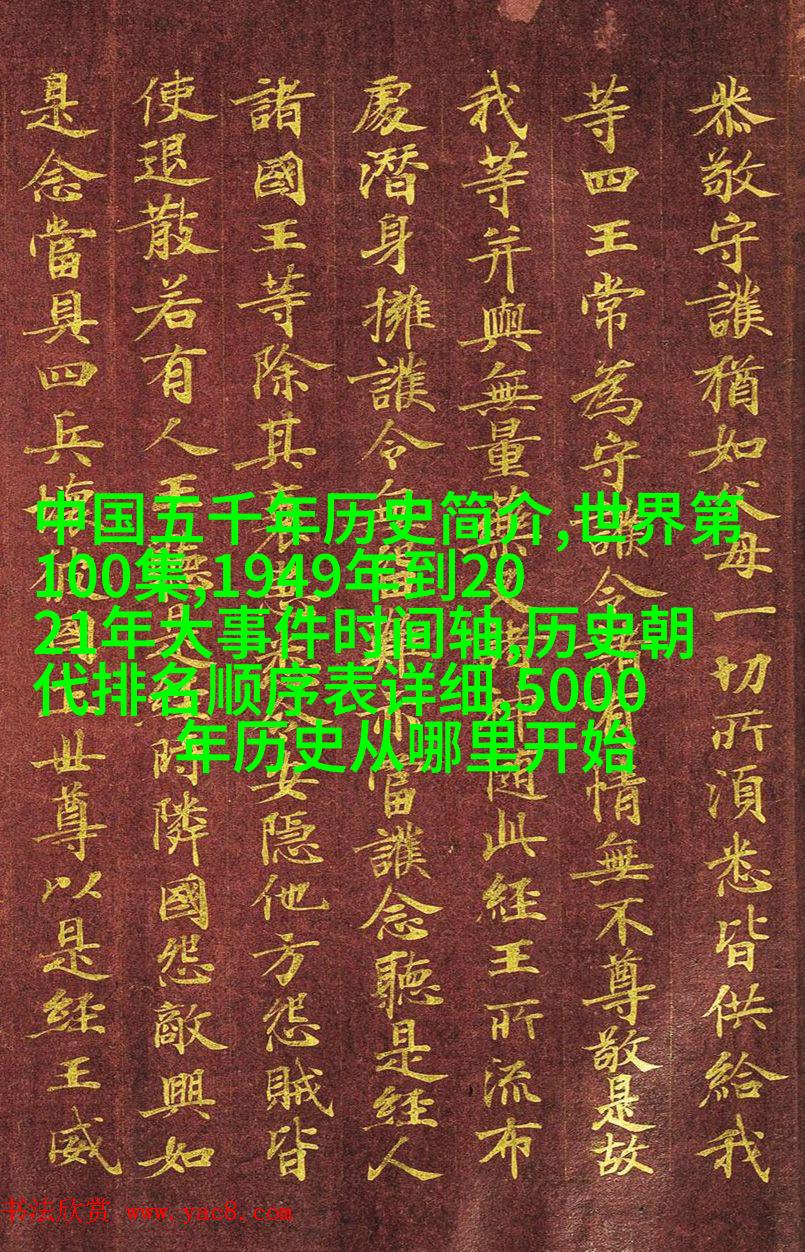 恭敬守護猶如父母一切所湏悉皆供給我
等四王常為守護令諸有情無不尊敬是故
我等并與無量藥叉諸神隨此經王所流布
處潛身擁護令留難亦當護念聽是經人
諸國王等除其衰安隱他方怨賊皆
使退散若有人王聽是經時隣國怨敵興如
是念當具四兵壞彼國土世尊以是經王威
中国五千年历史简介,世界第
100集,1949年到20
21年大事件时间轴,历史朝
代排名顺序表详细,5000
年历史从哪里开始
书法欣赏 www.yac8.com